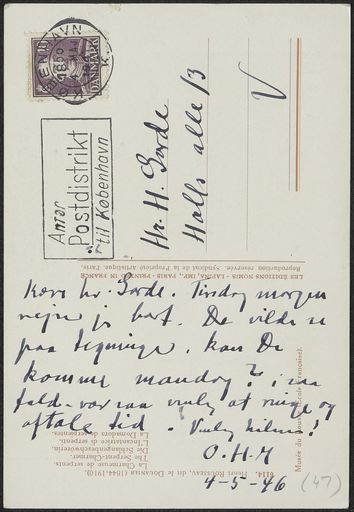 KØBENHAVN
DANMARK
Anfør
Postdistrikt
til København
Hr. H. Gorde
Halls alle 13
V
LES ÉDITIONS NOMIS - LAPINA, IMP., PARIS - PRINTED IN FRANCE
Reproduction réservée. Syndicat de la Propriété Artistique. Paris.
Kære hr. Gorde. Tirsdag morgen
rejser jeg bort. De vilde se
paa tegninger, kan De
komme mandag? i saa
fald vær saa venlig at ringe og
aftale tid. Venlig hilsen!
O.H.M
4-5-46
(47)
6114. HENRI ROUSSEAU, le dit le DOUANIER (1844-1910).
La Charmeuse de serpents.
The Serpent-Charmer.
Die Schlangenbeschwörerin.
L'Incantatrice di serpenti.
La Domadora de serpientes.
Musée du Louvre (École Française).